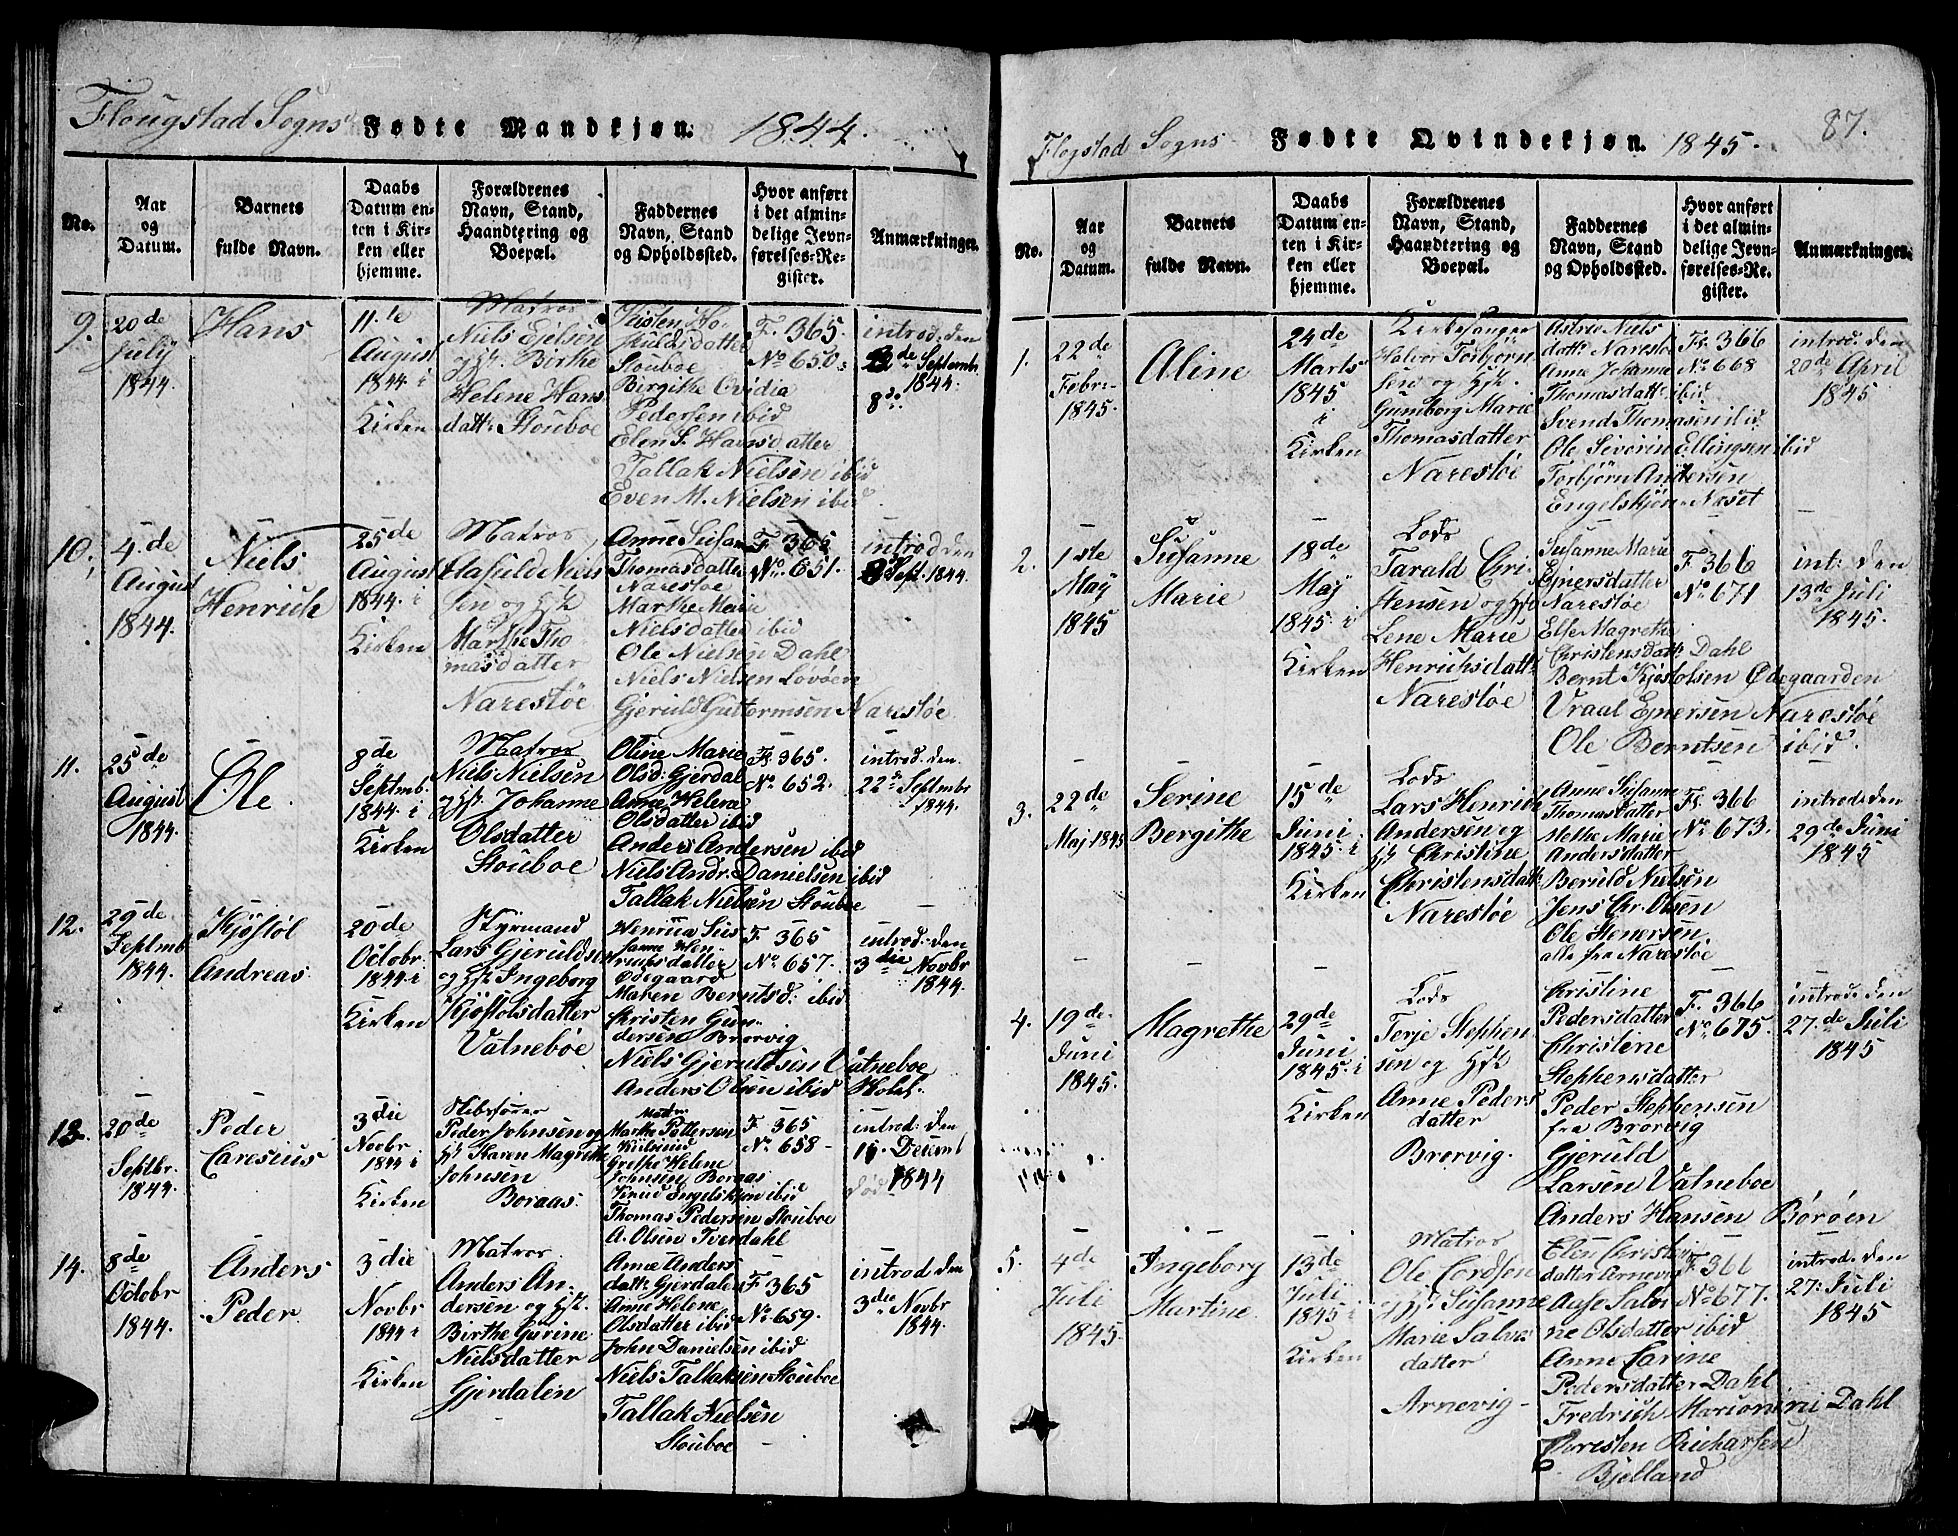 Flougstad Sogns Fødte Mandkjøn. 1844.
No.
Aar
og
Datum.
Barnets
fulde Navn.
Daabs
Datum en-
ten i Kir-
ken eller
hjemme.
Forældrenes
Navn, Stand,
Haandtering og
Boepæl.
Faddernes
Navn, Stand
og Opholdssted.
Hvor anført
i det almin-
delige Jevn-
førelses-Re-
gister.
Anmærkninger.
9.
20de
July
1844.
Hans
11.te
August
1844 i
Kirken
Matros
Niels Ejelsen
Birthe
Helene Hans
datt: Stouboe
datter
Stouboe
Bergithe Ovidia
Pedersen ibid
Elen S. Hansdatter
Tallak Nielsen ibid
Even M. Nielsen ibid.
F. 365.
No 650.
introd: den
Septembr
1844.
8de
10.
4.de
August
1844.
Niels
Henrich
25de
August
1844. i
Kirken
Matros
Niels
sen og
Marthe Tho
masdatter
Narestøe
Anne Susan
Thomasdatter
Narestøe
Marthe Marie
Nielsdatter ibid
Ole Nielsen Dahl
Niels Nielsen Lovøen
Gjeruld Guttormsen Narestøe
F. 365
No. 651.
introd den
8 Sept. 1844.
11.
25de
August
1844.
Ole
8de
Septmb.
1844 i
Kirken
Matros
Niels Nielsen
Johanne
Olsdatter
Stouboe
Oline Marie
Olsd: Gjerdal
Anne Helene
Olsdatter ibid
Anders Andersen ibid
Niels Andr. Danielsen ibid
Tallak Nielsen Stouboe
F. 365.
No. 652.
introd: den
22de Septmbr
1844.
12.
29de
Septmb
1844.
Kjøstøl
Andreas
20de
Octobr.
1844. i
Kirken
Styrmand
Lars Gjeruldsen
og Ingeborg
Kjøstolsdatter
Vatneboe
Sus
sanne Hen-
richsdatter
Ødegaard
Maren Berntsd: ibid
Christen Gun-
dersen Brørvig
Niels Gjeruldsen Vatneboe
Anders Olsen ibid Holt.
F. 365
No. 657.
introd: den
3die Novbr
1844.
13.
20de
Septbr.
1844.
Peder
Caresius
3die
Novbr
1844 i
Kirken
Peder Johnsen og
Karen Magrethe
Johnsen
Boraas.
Marthe Pettersen
Grethe Helene
Johnsen Boraas
Knud Engelskjøn ibid
Thomas Pedersen Stouboe
A. Olsen Tverdahl
F. 365
No. 658
introd: den
1844
14.
8de
Octobr
1844.
Anders
Peder
3die
Novbr
1844 i
Kirken
Matros
Anders An-
dersen og
Birthe Gurine
Nielsdatter
Gjerdalen
Anne Anders
datt: Gjerdalen
Anne Helene
Olsdatter ibid
John Danielsen ibid
Niels Tallaksen Stouboe
Tallak Nielsen
Stouboe
F. 365
No. 659.
introd den
3die Novbr
1844.
Flogstad Sogns Fødte Qvindekjøn. 1845. 87.
No.
Aar
og
Datum.
Barnets
fulde Navn.
Daabs
Datum en-
ten i Kir-
ken eller
hjemme.
Forældrenes
Navn, Stand,
Haandtering og
Boepæl.
Faddernes
Navn, Stand
og Opholdssted.
Hvor anført
i det almin-
delige Jevn-
førelses-Re-
gister.
Anmærkninger.
1.
22de
Febr.
1845.
Aline
24de
Marts
1845
i
Kirken
Kirkesanger
Halvor Torbjørn
sen og
Gumborg Marie
Thomasdatter
Narestøe
Astrid Niels
datt: Narestøe
Anne Johanne
Thomasdatt: ibid
Svend Thomasen ibid
Ole Siverin Ellingsen ibid
Torbjørn Andersen
Engelskjøn Næset
F. 366
No 668
introd: den
20de April
1845
2.
1ste
Maj
1845
Susanne
Marie
18de
Maj
1845. i
Kirken
Lods
Tarald Chri-
stensen og
Lene Marie
Henrichsdatt:
Narestøe
Susanne Marie
Ejnersdatter
Narestøe
Else Magrethe
Christensdatt: Dahl
Bernt Kjøstolsen Ødegaarden
Vraal Ejnersen Narestøe
Ole Berntsen ibid.
F. 366
No 671
int: den
13de Juli
1845.
3.
22de
Maj 1845
Serine
Bergithe
15de
Juni
1845. i
Kirken
Lods
Lars Henrik
Andersen og
Christine
Christensdatt
Narestøe
Anne Susanne
Thomasdatter
Methe Marie
Andersdatter
Beruld Nielsen
Jens Chr. Olsen
Ole Stenersen
alle fra Narestøe
F. 366
No 673.
introd: den
29de Juni
1845
4.
19de
Juni
1845.
Magrethe
29de
Juni
1845. i
Kirken
Lods
Terje Stephen
sen og
Anne Peders
datter
Brørvig.
Christine
Pedersdatter
Christine
Stephensdatter
Peder Stephensen
fra Brørvig
Gjeruld
Larsen Vatneboe
Anders Hansen Børøen
F. 366
No 675.
introd: den
27.de Juli
1845
5.
4de
Juli
1845.
Ingeborg
Martine
13de
Juli
1845 i
Kirken
Matros
Ole Cordsøn
Susanne
Marie Salve
datter
Arnevig
Elen Christen
datter Arnevig
Aase Salvi
ne Olsdatter ibid
Anne Carine
Pedersdatter Dahl
Fredrich Dahl
Toresten Richarsen
Bjelland
F. 366
No 677.
introd: den
27: Juli
1845